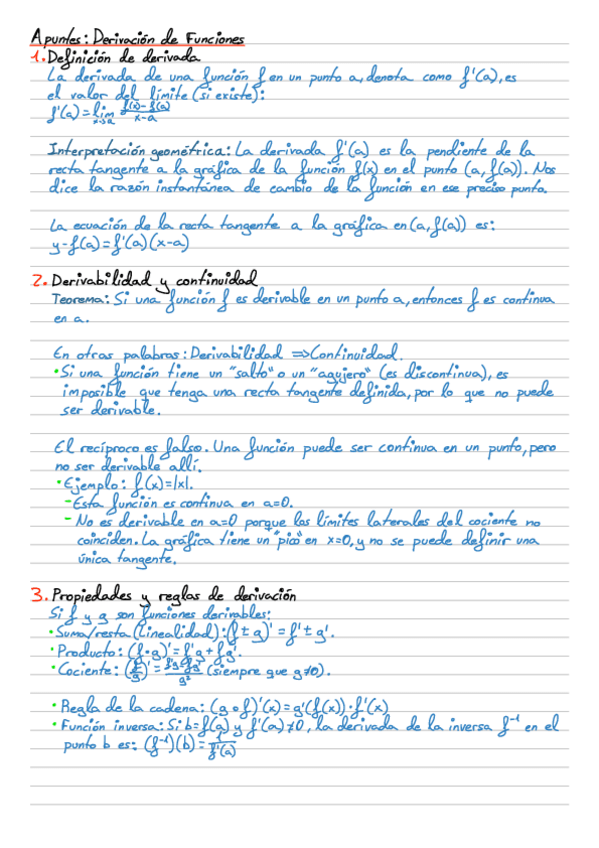 Apuntes: Derivación de Funciones
1. Definición de derivada
La derivada de una función f en un punto a, denota como f'(a), es
el valor del límite (si existe):
f'(a) = lim x→a (f(x) - f(a))/(x-a)
Interpretación geométrica: La derivada f'(a) es la pendiente de la
recta tangente a la gráfica de la función f(x) en el punto (a, f(a)). Nos
dice la razón instantánea de cambio de la función en ese preciso punto.
La ecuación de la recta tangente a la gráfica en (a, f(a)) es:
y - f(a) = f'(a)(x-a)
2. Derivabilidad y continuidad
Teorema: Si una función f es derivable en un punto a, entonces f es continua
en a.
En otras palabras: Derivabilidad ⇒ Continuidad.
• Si una función tiene un "salto" o un "agujero" (es discontinua), es
imposible que tenga una recta tangente definida, por lo que no puede
ser derivable.
El recíproco es falso. Una función puede ser continua en un punto, pero
no ser derivable allí.
• Ejemplo: f(x) = |x|.
- Esta función es continua en a=0.
- No es derivable en a=0 porque los límites laterales del cociente no
coinciden. La gráfica tiene un "pico" en x=0, y no se puede definir una
única tangente.
3. Propiedades y reglas de derivación
Si f y g son funciones derivables:
• Suma/resta (Linealidad): (f ± g)' = f' ± g'.
• Producto: (f·g)' = f'g + fg'.
• Cociente: (f/g)' = (f'g - fg')/g² (siempre que g≠0).
• Regla de la cadena: (g ∘ f)'(x) = g'(f(x))·f'(x)
• Función inversa: Si b=f(a) y f'(a)≠0, la derivada de la inversa f⁻¹ en el
punto b es: (f⁻¹)'(b) = 1/f'(a)